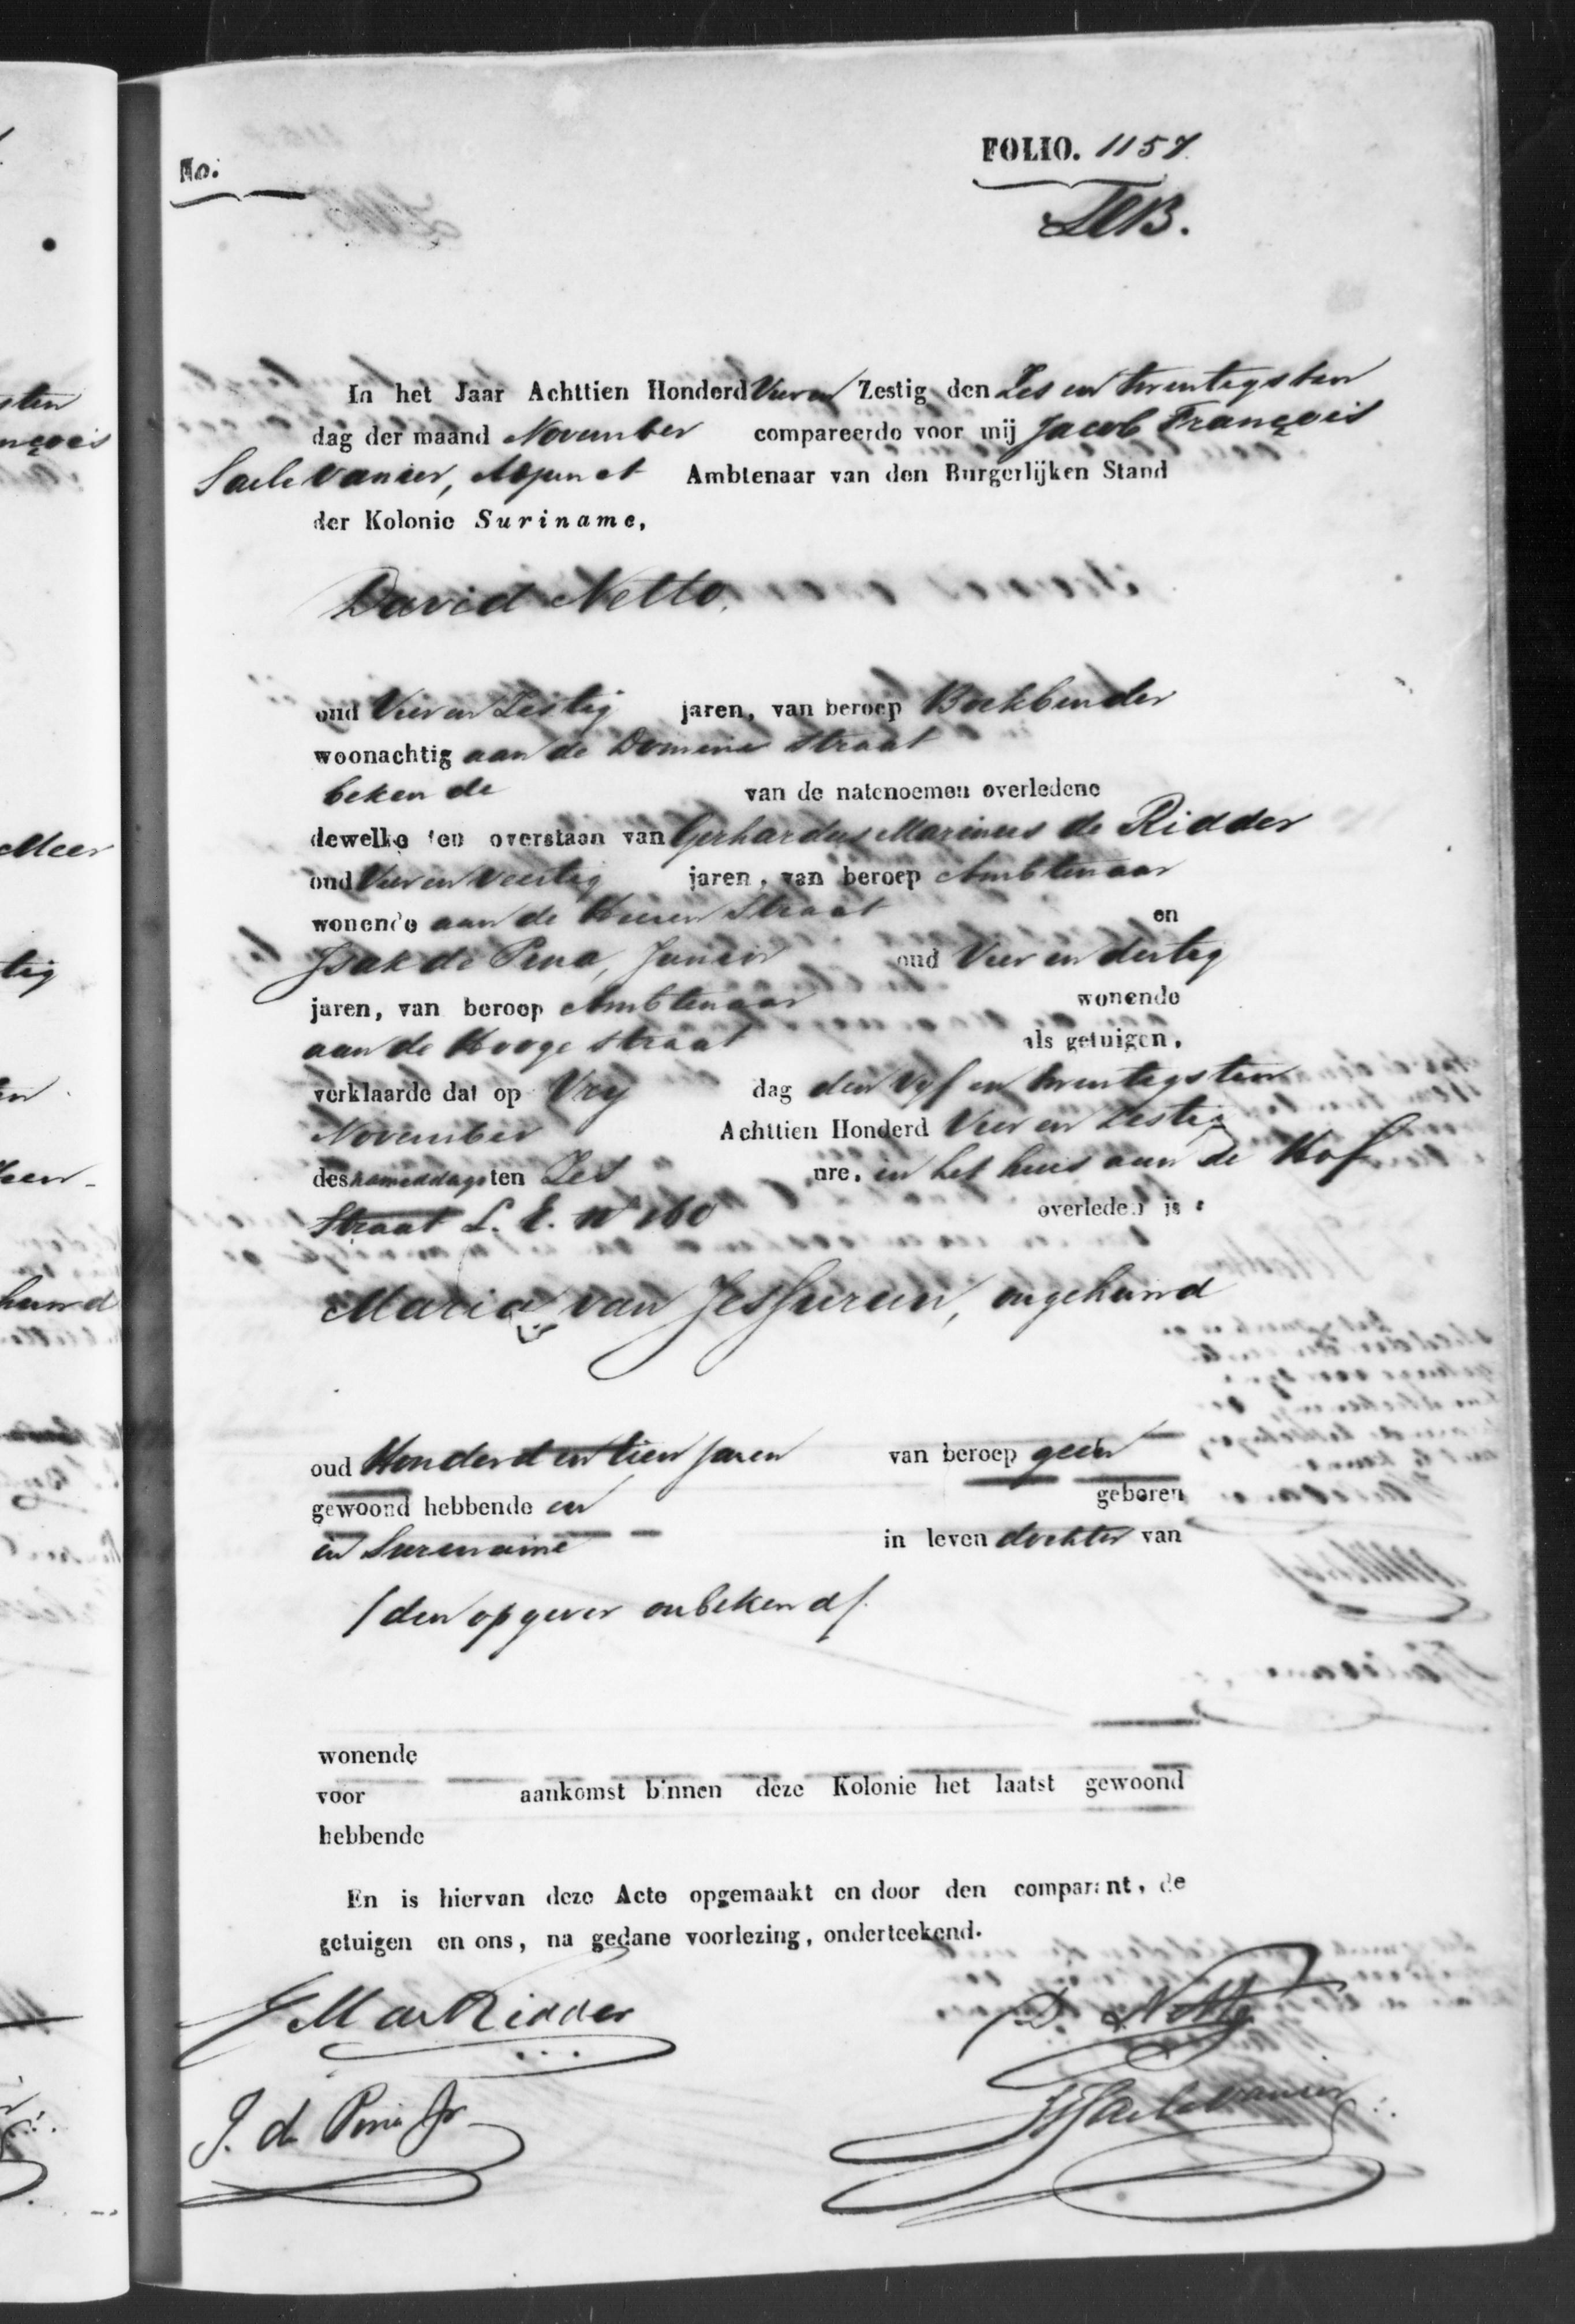 No.
FOLIO. 1157.
In het Jaar Achttien Honderd Vier en Zestig den Zes en twentigsten
dag der maand November compareerde voor mij Jacob François
Ambtenaar van den Burgerlijken Stand
der Kolonie Suriname,
David Netto,
oud Vier en Zestig jaren, van beroep Boekbinder
woonachtig aan de Domine straat
bekende van de natenoemen overledene
dewelke ten overstaan van Gerhardus Marinus de Ridder
oud Vier en veertig jaren, van beroep Ambtenaar
wonende aan de Heeren Straat en
Isak de Pina, Junior oud Vier en dertig
jaren, van beroep Ambtenaar wonende
aan de Hooge straat als getuigen,
verklaarde dat op Vry dag den Vyf en twentigsten
November Achttien Honderd Vier en Zestig
des namiddags ten Zes ure, in het huis aan de Hof
Straat L. E. No 160 overleden is :
Maria van Jessurun, ongehuwd
oud Honderd en tien jaren van beroep geen
gewoond hebbende en geboren
in Suriname in leven dochter van
/den opgever onbekend/.
wonende
voor aankomst binnen deze Kolonie het laatst gewoond
hebbende
En is hiervan deze Acte opgemaakt en door den comparant, de
getuigen en ons, na gedane voorlezing, onderteekend.
G M de Ridder
D Netto
J. d. Pina Jr